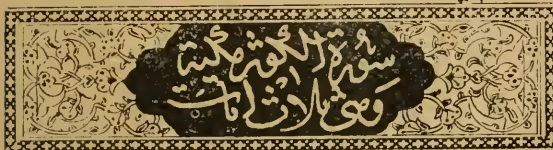 سُورَةُ الكَوْثَرِ مَكِّيَّة
وَهِيَ ثَلَاثُ اٰيَاتٍ